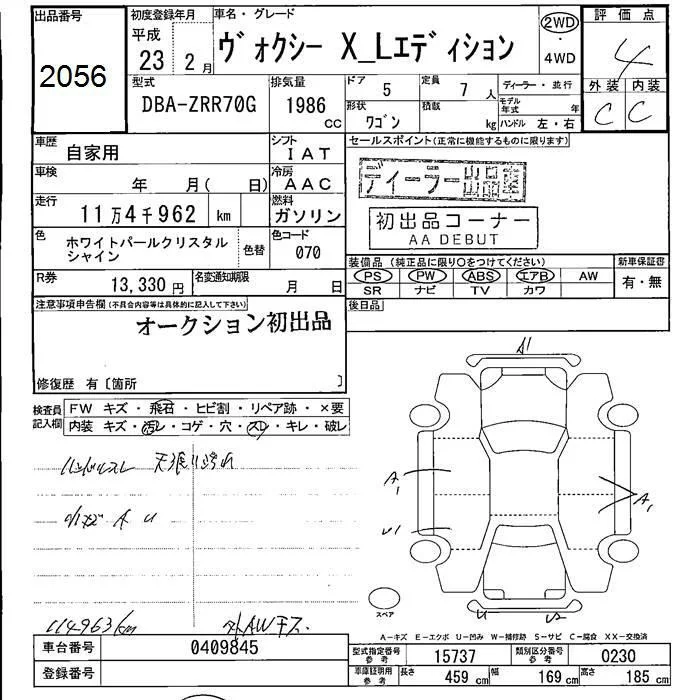 出品番号
2056
初度登録年月
平成
23 2月
車名・グレード
ヴォクシー X_Lエディション
2WD
・
4WD
評価点
4
外装 内装
C C
型式
DBA-ZRR70G
排気量
1986
CC
ドア
5
定員
7人
ディーラー・並行
モデル年式 年
形状
ワゴン
積載
kg
ハンドル 左・右
車歴
自家用
シフト
IAT
車検
年 月( 日)
冷房
AAC
走行
11万4千962 km
燃料
ガソリン
色
ホワイトパールクリスタル
シャイン
色替
色コード
070
R券
13,330円
名変通知期限
月 日
セールスポイント(正常に機能するものに限ります)
ディーラー出品車
初出品コーナー
AA DEBUT
装備品(純正品に限り○をつけてください)
PS PW ABS エアB AW
SR ナビ TV カワ
新車保証書
有・無
後日品
注意事項申告欄(不具合内容等は具体的に記入して下さい)
オークション初出品
修復歴 有〔箇所 〕
検査員
記入欄
FW キズ・飛石・ヒビ割・リペア跡・×要
内装 キズ・汚レ・コゲ・穴・スレ・キレ・破レ
ハンドルスレ 天張り汚れ
小キズ A U
114963km
外AWキズ
A1
A1
U1
A1
U
U2
スペア
A-キズ E-エクボ U-凹み W-補修跡 S-サビ C-腐食 XX-交換済
車台番号
0409845
登録番号
型式指定番号
参考
15737
類別区分番号
参考
0230
車庫証明用
参考
長さ 459 cm 幅 169 cm 高さ 185 cm